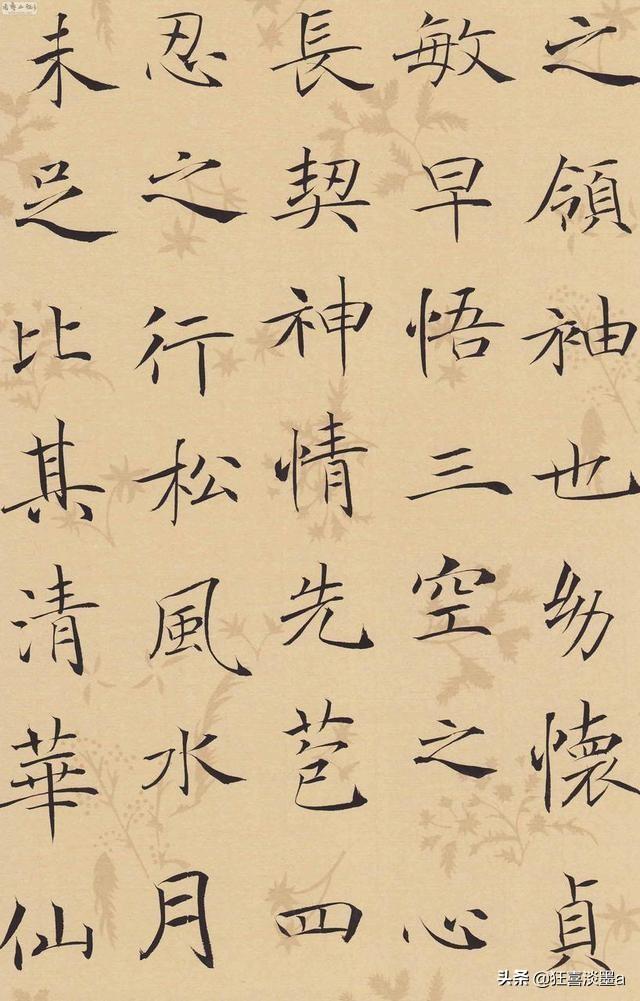 之領袖也幼懷貞
敏早悟三空之心
長契神情先苞四
忍之行松風水月
未足比其清華仙
头条 @狂喜淡墨a